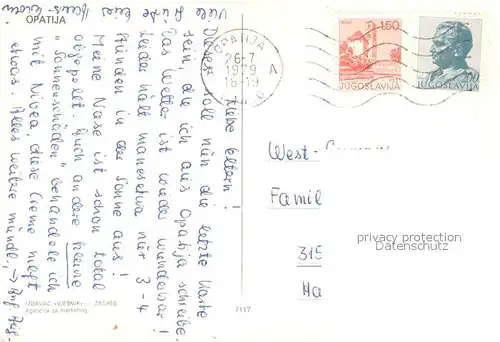 OPATIJA
Liebe Eltern!
Dieses soll nun die letzte Karte
sein, die ich aus Opatija schreibe.
Das Wetter ist wieder wunderbar!
Leider hält man es etwa nur 3-4
Stunden in der Sonne aus!
Meine Nase ist schon total
abgepellt. Auch andere kleine
"Sonnenschäden" behandele ich
mit Nivea, diese Creme hilft
etwas. Alles weitere mündl.,
Viele
Grüße
OPATIJA
26-7
1979
18-19
A
1.50
JUGOSLAVIJA
JUGOSLAVIJA
West-
Famil
315
Ha
privacy protection
Datenschutz
IZDAVAČ »VJESNIK« — ZAGREB
Agencija za marketing
7117